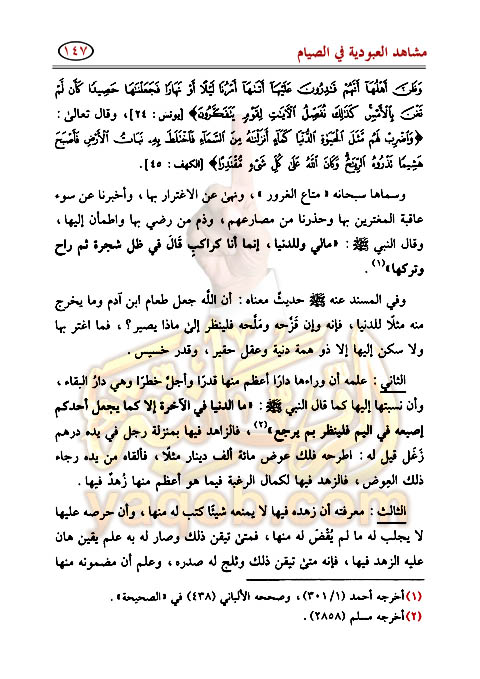 مشاهد العبودية في الصيام ١٤٧
وَظَنَّ أَهْلُهَا أَنَّهُمْ قَادِرُونَ عَلَيْهَا أَتَاهَا أَمْرُنَا لَيْلًا أَوْ نَهَارًا فَجَعَلْنَاهَا حَصِيدًا كَأَن لَّمْ
تَغْنَ بِالْأَمْسِ كَذَلِكَ نُفَصِّلُ الْآيَاتِ لِقَوْمٍ يَتَفَكَّرُونَ﴾ [يونس : ٢٤] ، وقال تعالىٰ :
﴿وَاضْرِبْ لَهُم مَّثَلَ الْحَيَاةِ الدُّنْيَا كَمَاءٍ أَنزَلْنَاهُ مِنَ السَّمَاءِ فَاخْتَلَطَ بِهِ نَبَاتُ الْأَرْضِ فَأَصْبَحَ
هَشِيمًا تَذْرُوهُ الرِّيَاحُ وَكَانَ اللَّهُ عَلَى كُلِّ شَيْءٍ مُّقْتَدِرًا﴾ [الكهف : ٤٥] .
وسماها سبحانه « متاع الغرور » ، ونهىٰ عن الاغترار بها ، وأخبرنا عن سوء
عاقبة المغترين بها وحذرنا من مصارعهم ، وذم من رضي بها واطمأن إليها ،
وقال النبي ﷺ : «مالي وللدنيا ، إنما أنا كراكبٍ قَالَ في ظل شجرة ثم راح
وتركها»(١) .
وفي المسند عنه ﷺ حديثٌ معناه : أن اللَّه جعل طعام ابن آدم وما يخرج
منه مثلًا للدنيا ، فإنه وإن قَزَّحه ومَلَّحه فلينظر إلىٰ ماذا يصير؟ ، فما اغتر بها
ولا سكن إليها إلا ذو همة دنية وعقل حقير ، وقدر خسيس .
الثاني : علمه أن وراءها دارًا أعظم منها قدرًا وأجلّ خطرًا وهي دارُ البقاء ،
وأن نسبتها إليها كما قال النبي ﷺ : «ما الدنيا في الآخرة إلا كما يجعل أحدكم
إصبعه في اليم فلينظر بم يرجع»(٢) ، فالزاهد فيها بمنزلة رجل في يده درهم
زَغَل قيل له : اطرحه فلك عوض مائة ألف دينار مثلًا ، فألقاه من يده رجاء
ذلك العِوض ، فالزهد فيها لكمال الرغبة فيما هو أعظم منها زُهدٌ فيها .
الثالث : معرفته أن زهده فيها لا يمنعه شيئًا كتب له منها ، وأن حرصه عليها
لا يجلب له ما لم يُقْضَ له منها ، فمتىٰ تيقن ذلك وصار له به علم يقين هان
عليه الزهد فيها ، فإنه متىٰ تيقن ذلك وثلج له صدره ، وعلم أن مضمونه منها
(١) أخرجه أحمد (٣٠١/١) ، وصححه الألباني (٤٣٨) في «الصحيحة» .
(٢) أخرجه مسلم (٢٨٥٨) .
yaqob.com